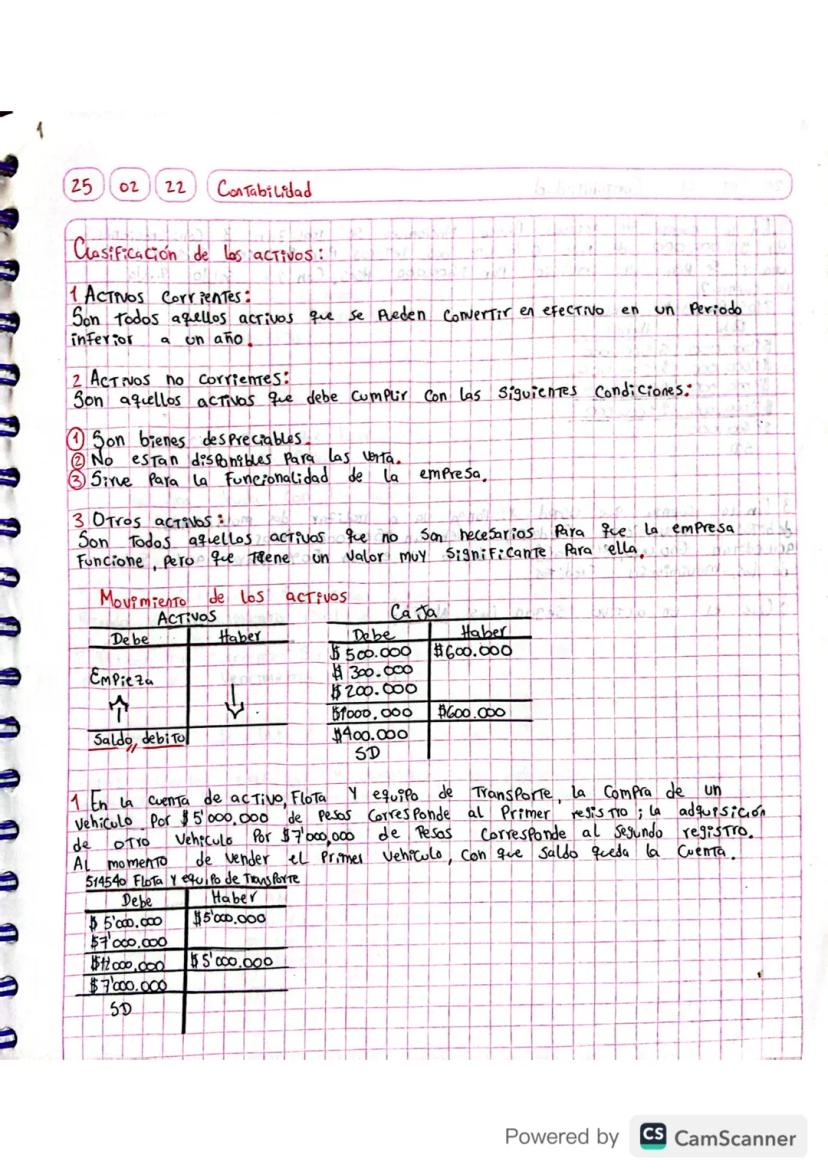 1
25 02 22 Contabilidad
Clasificación de los activos:
1 Activos corrientes:
Son todos aquellos activos que se pueden convertir en efectivo en un periodo
inferior a un año.
2 Activos no corrientes:
Son aquellos activos que debe cumplir con las siguientes condiciones:
1 Son bienes despreciables.
2 No estan disponibles para las venta.
3 Sirve para la funcionalidad de la empresa.
3 Otros activos:
Son todos aquellos activos que no son necesarios para que la empresa
funcione, pero que tiene un valor muy significante para ella.
Movimiento de los activos
Activos
Debe Haber
Empieza
Saldo debito
Caja
Debe Haber
$500.000 $600.000
$300.000
$200.000
$1000.000 $600.000
$400.000
SD
1 En la cuenta de activo, Flota y equipo de transporte, la compra de un
vehiculo por $5'000.000 de pesos corresponde al primer resistro; la adquisición
de otro vehiculo por $7'000,000 de pesos corresponde al segundo registro.
Al momento de vender el primer vehiculo, con que saldo queda la cuenta.
514540 Flota y equipo de transporte
Debe Haber
$5'000.000 $5'000.000
$7'000.000
$12000,000 $5'000.000
$7'000.000
SD
Powered by CS CamScanner